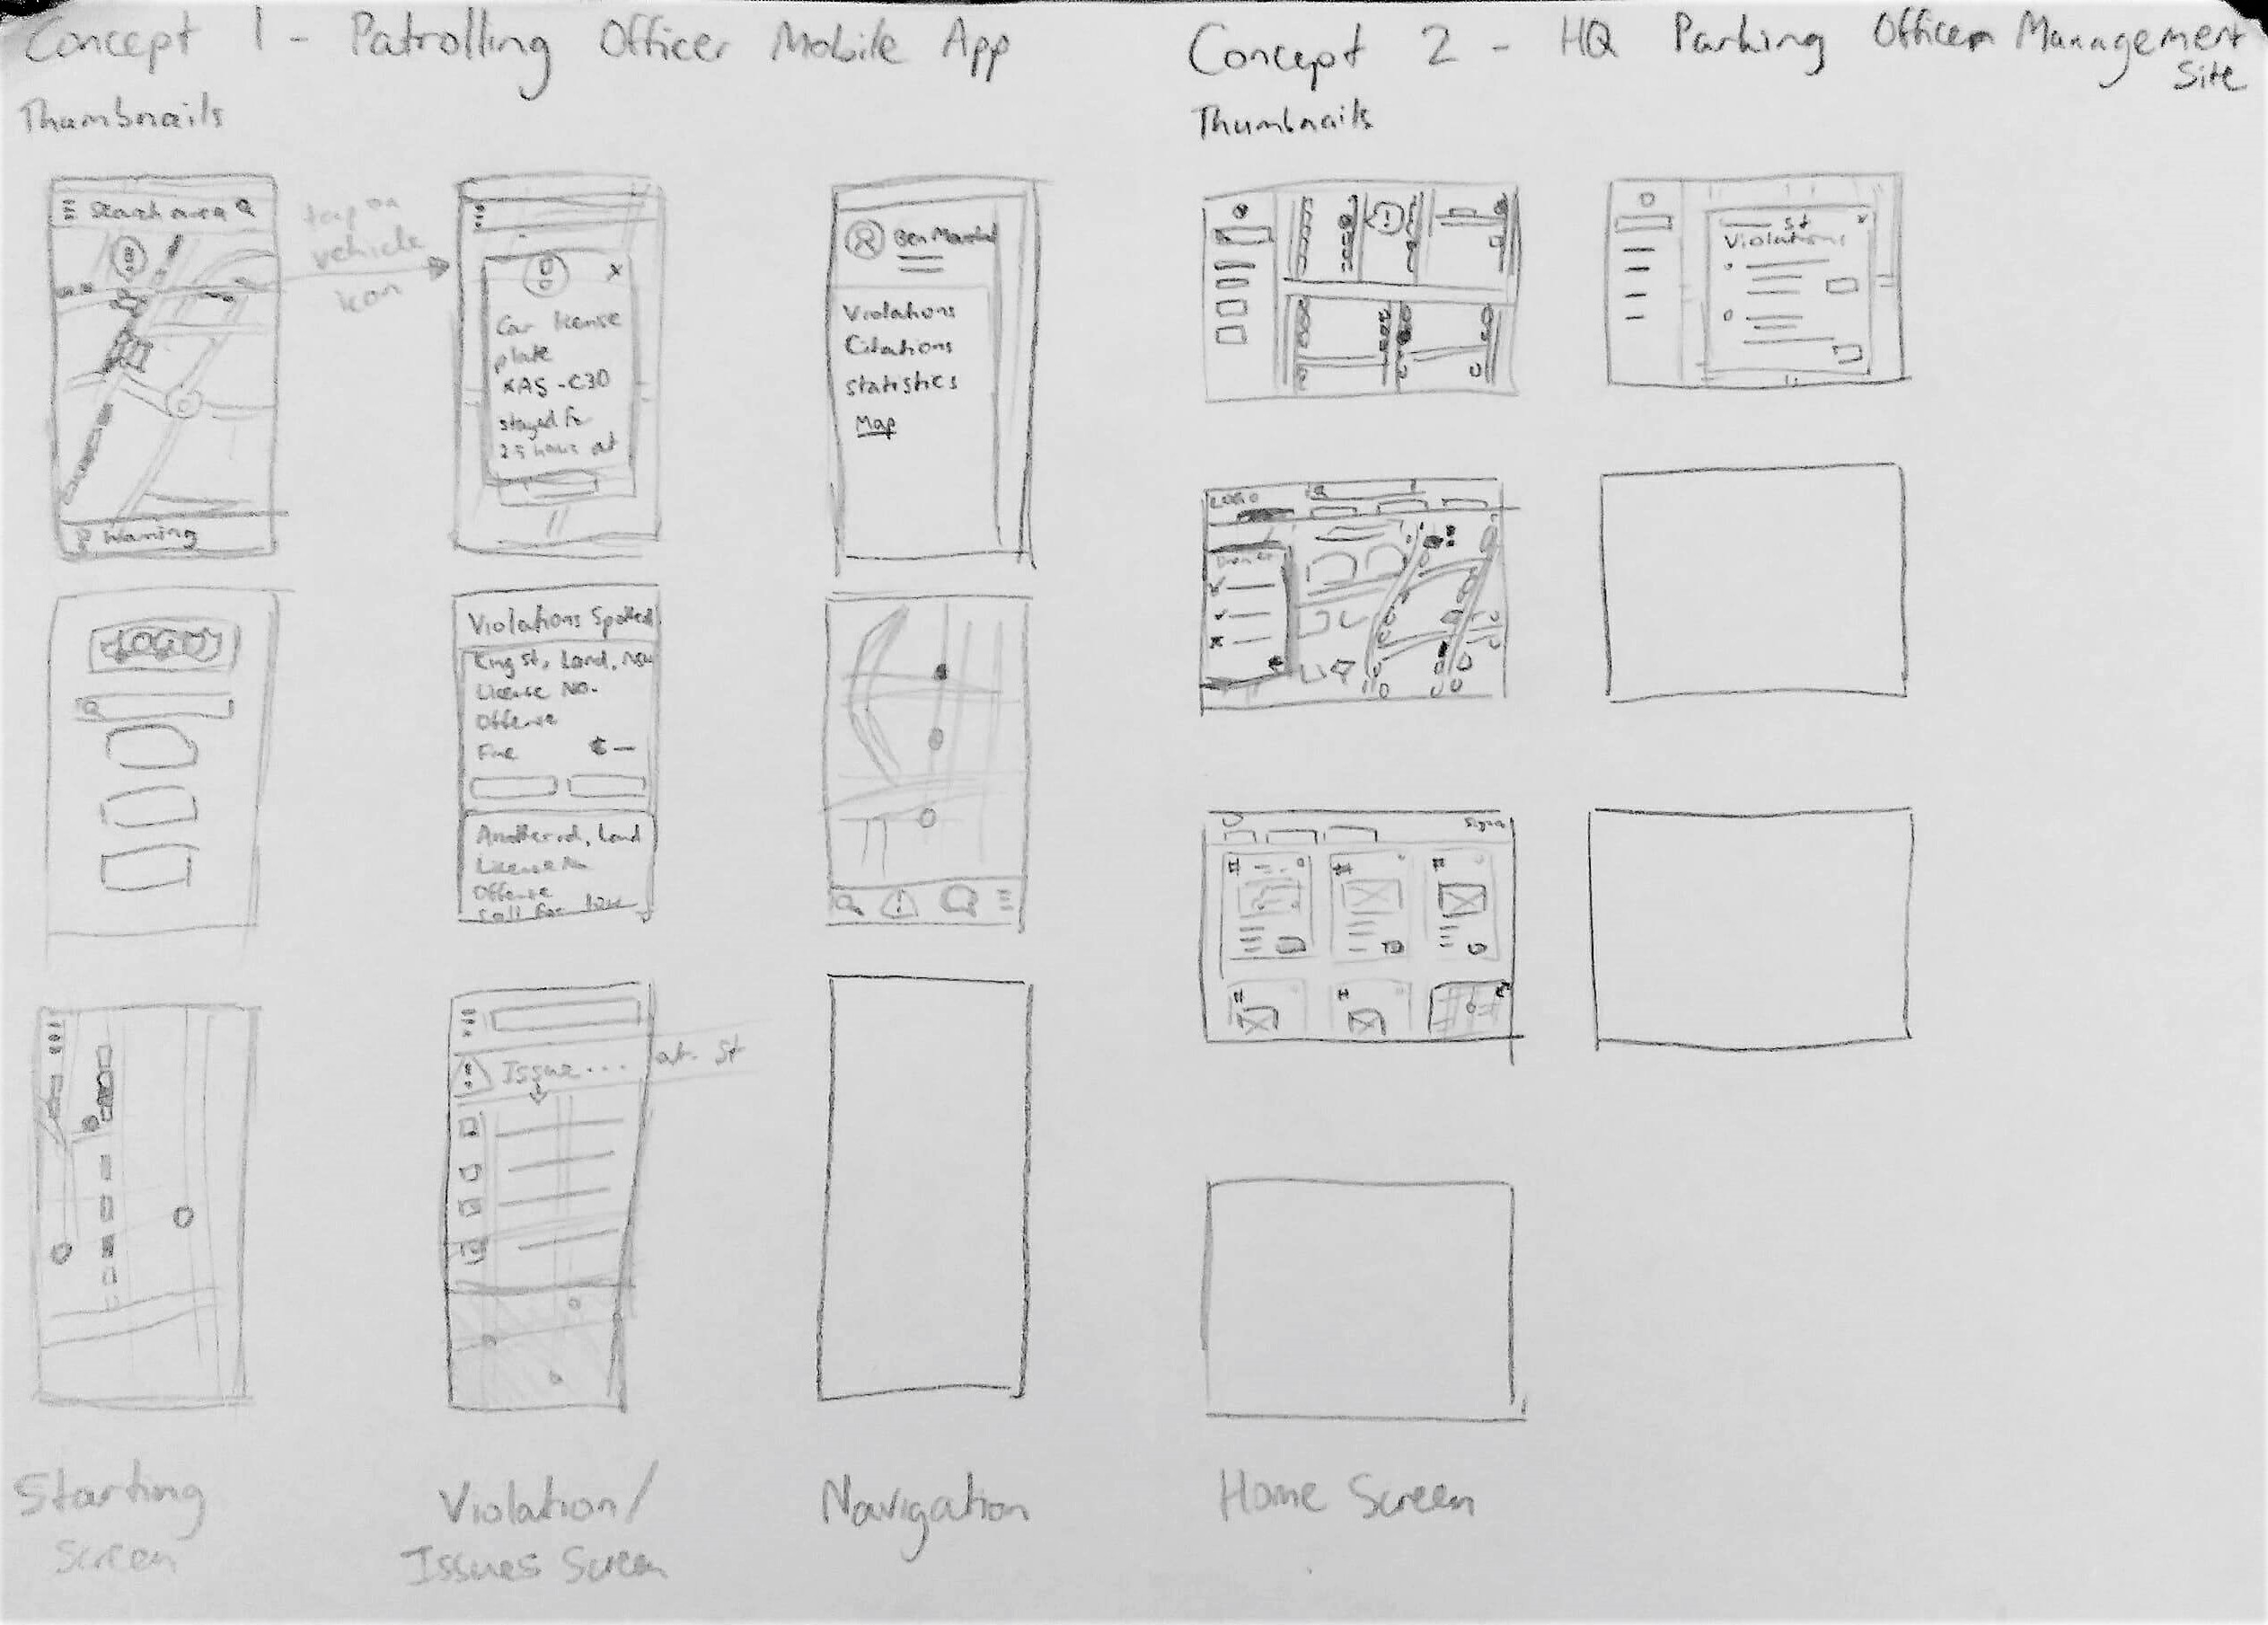 Concept 1 - Patrolling Officer Mobile App
Thumbnails
Search area
Warning
tap on
vehicle
icon
Car license
plate
XAS-C30
stayed for
2.5 hours at
Violations
Citations
Statistics
Map
LOGO
Violations Spotted
King st, Land, NSW
License No.
Offense
Fine $ —
Another rd, Land
License No
Offense
Issue... at St
Starting
Screen
Violation/
Issues Screen
Navigation
Concept 2 - HQ Parking Officer Management
Site
Thumbnails
St
Violations
LOGO
Home Screen